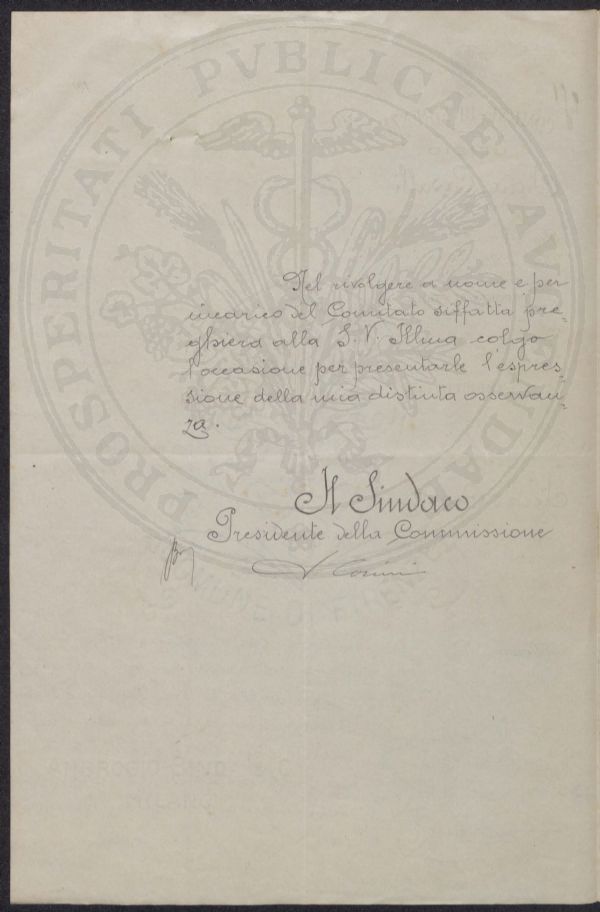 PROSPERITATI PVBLICAE AVGENDAE
Nel rivolgere a nome e per
incarico del Comitato siffatta pre=
ghiera alla S. V. Illma colgo
l'occasione per presentarle l'espres=
sione della mia distinta osservan=
za.
Il Sindaco
Presidente della Commissione